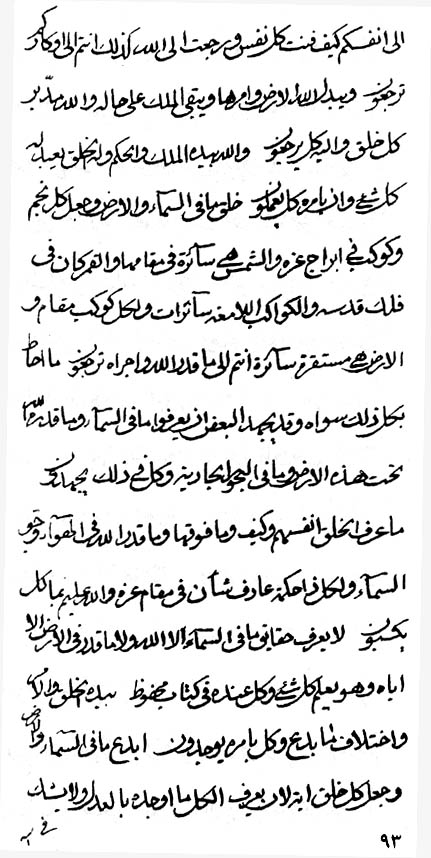 الی انفسکم کیف فنت کل نفس و رجعت الی الله کذلک انتم الی اوکارکم
ترجعون و یبدل الله الارض و امرها و یبقی الملک علی حاله والله مدبر
کل خلق والیه کل یرجعون والله بیده الملک والحکم وله الخلق یعبد له
کل شیء وان بامره کل یعملون خلق ما فی السمآء والارض وجعل لکل نجم
وکوکب فی ابراج عزه والشمس هی سآئرة فی مقامها والقمر کان فی
فلک قدسه والکواکب اللامعة سآئرات ولکل کوکب مقام و
الارض هی مستقرة سآئرة انتم الی ما قدر الله واجراه ترجعون ما احاط
بکل ذلک سواه وقد یجهد البعض ان یعرفوا ما فی السمآء وما قدر والله
تحت هذه الارض وما فی البحور لجاریة وکل فی ذلک یجهدون
ما عرف الخلق انفسهم وکیف وما فوقها وما قدر الله فی الهوآء وجو
السمآء ولکل ذا حکمة عارف شأن فی مقام عزه والله علیم بما کل
یکسبون لا یعرف حقایق ما فی السمآء الا الله ولا ما قدر فی الارض الا
ایاه وهو یعلم کل شیء وکل عنده فی کتاب محفوظ بیده الخلق والامر
واختلاف ما ابدع وکل بامره یوجدون ابدع ما فی السمآء والارض
وجعل کل خلق ایة لان یعرف الکل ما اوجده بالعدل ولا یشک
فی
٩٣